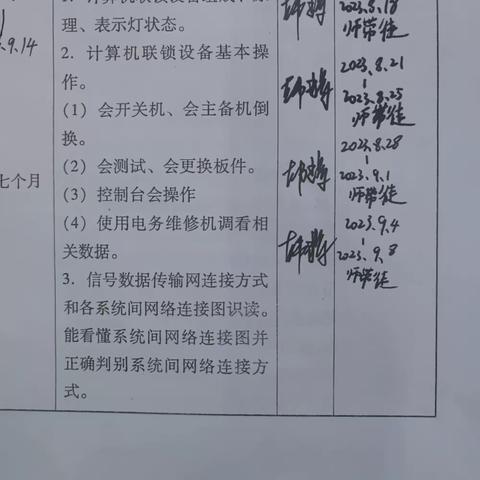 理、表示灯状态。
2. 计算机联锁设备基本操
作。
(1) 会开关机、会主备机倒
换。
(2) 会测试、会更换板件。
(3) 控制台会操作
(4) 使用电务维修机调看相
关数据。
3. 信号数据传输网连接方式
和各系统间网络连接图识读。
能看懂系统间网络连接图并
正确判别系统间网络连接方
式。
七个月
.9.14
2023.8.18
师带徒
2023.8.21
2023.8.25
师带徒
2023.8.28
2023.9.1
师带徒
2023.9.4
2023.9.8
师带徒